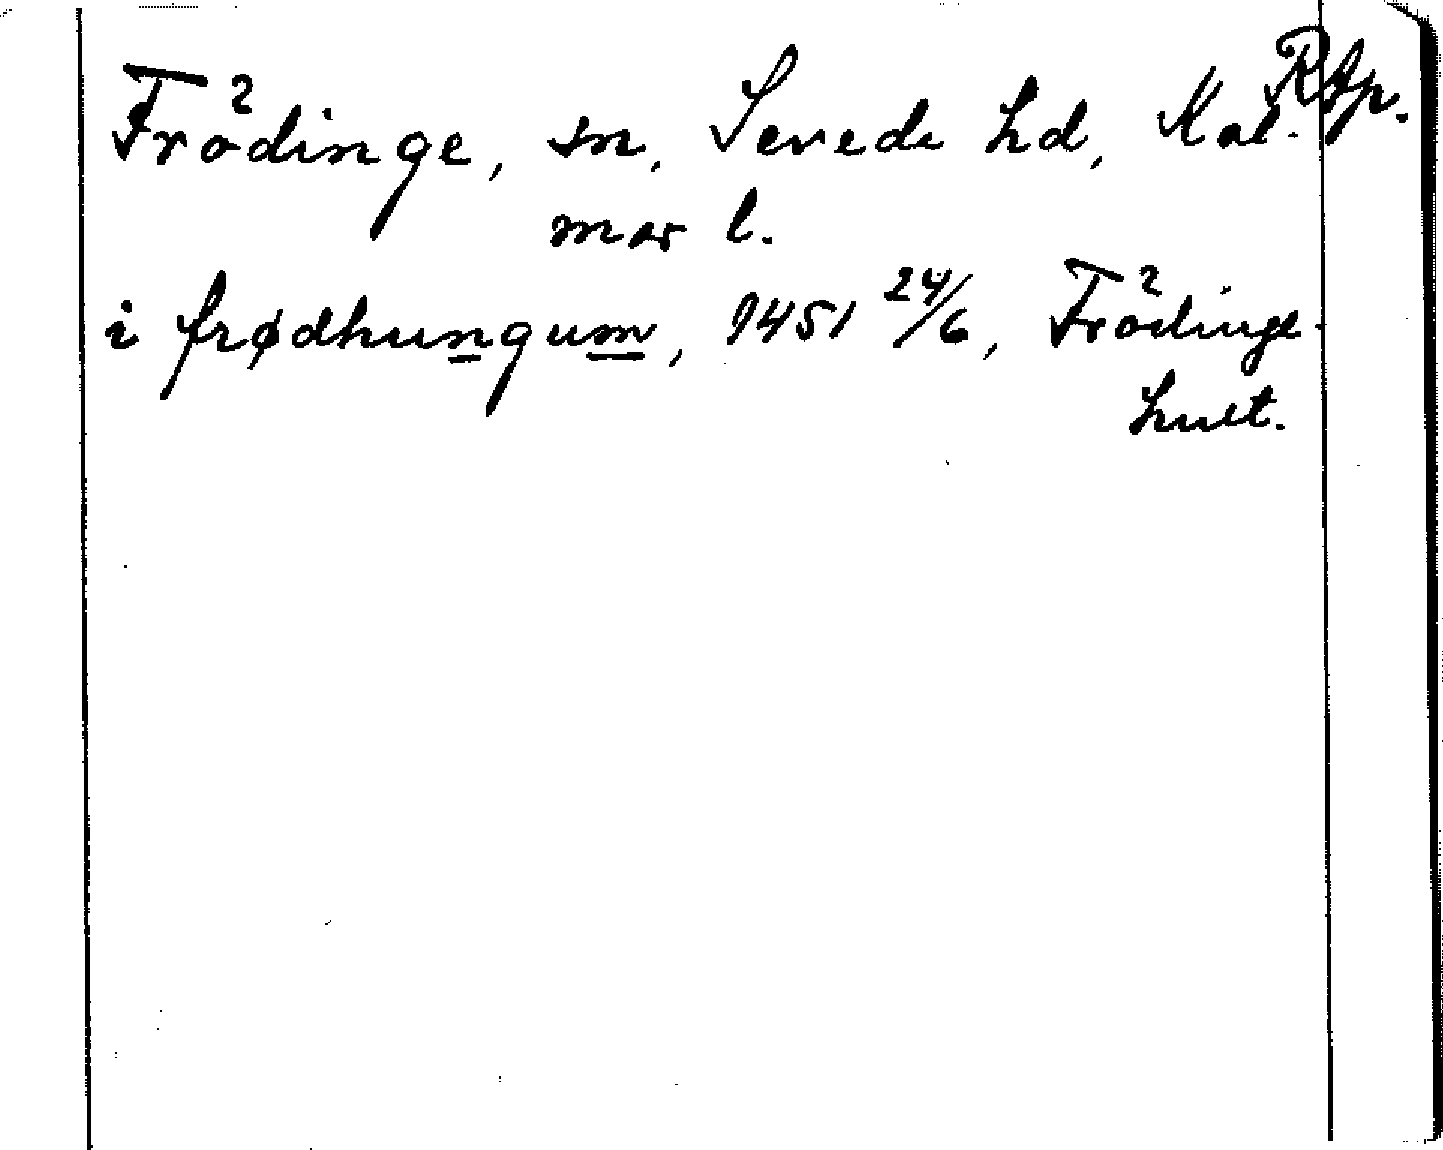 Frödinge, sn, Sevede hd, Kal- RAp.
mar l.
i frødhungum, 1451 24/6, Frödinge-
hult.